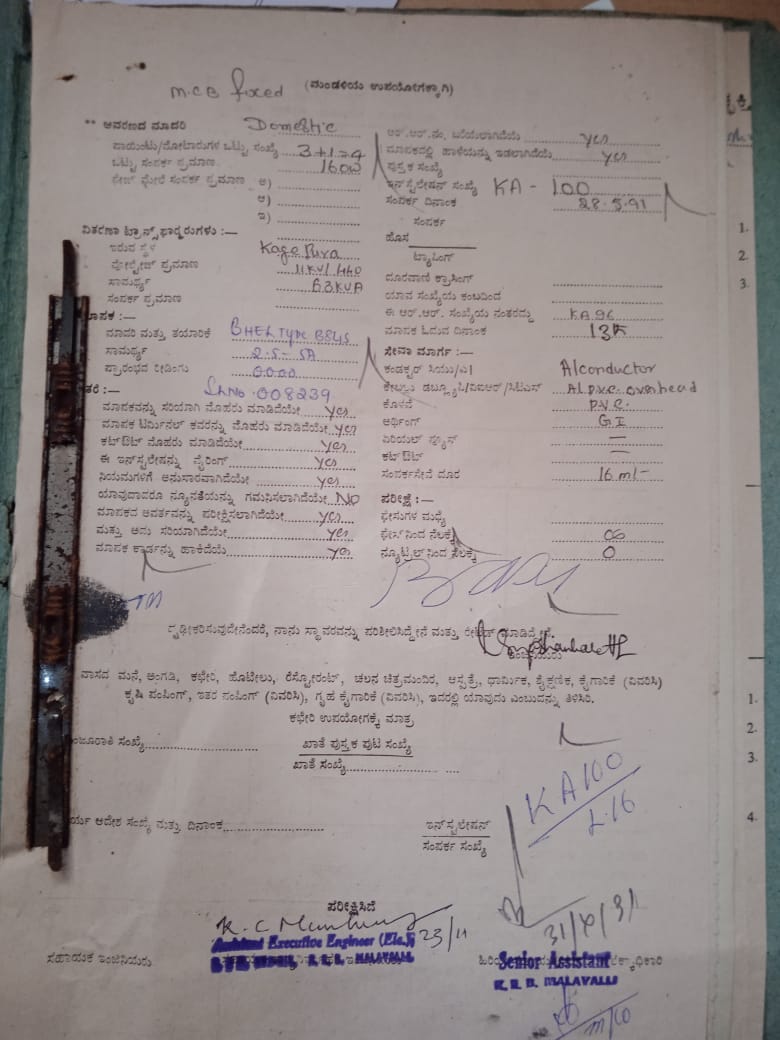 M.C.B fixed (ಮಂಡಳಿಯ ಉಪಯೋಗಕ್ಕಾಗಿ)
** ಆವರಣದ ಮಾದರಿ Domestic
ಪಾಯಿಂಟು/ಮೋಟಾರುಗಳ ಒಟ್ಟು ಸಂಖ್ಯೆ 3+1=4
ಒಟ್ಟು ಸಂಪರ್ಕ ಪ್ರಮಾಣ 160W
ಫೇಜ್ ಮೇಲೆ ಸಂಪರ್ಕ ಪ್ರಮಾಣ ಅ)
ಆ)
ಇ)
ವಿತರಣಾ ಟ್ರಾನ್ಸ್‌ಫಾರ್ಮರುಗಳು :—
ಇರುವ ಸ್ಥಳ Kagepura
ವೋಲ್ಟೇಜ್ ಪ್ರಮಾಣ 11KV/440
ಸಾಮರ್ಥ್ಯ 63KVA
ಸಂಪರ್ಕ ಪ್ರಮಾಣ
ಮಾಪಕ :—
ಮಾದರಿ ಮತ್ತು ತಯಾರಿಕೆ BHEL TYPE B84S
ಸಾಮರ್ಥ್ಯ 2.5-5A
ಪ್ರಾರಂಭದ ರೀಡಿಂಗು 0000
ಇತರೆ :— Sl.No. 008239
ಮಾಪಕವನ್ನು ಸರಿಯಾಗಿ ಮೊಹರು ಮಾಡಿದೆಯೇ yes
ಮಾಪಕ ಟರ್ಮಿನಲ್ ಕವರನ್ನು ಮೊಹರು ಮಾಡಿದೆಯೇ yes
ಕಟ್‌ಔಟ್ ಮೊಹರು ಮಾಡಿದೆಯೇ yes
ಈ ಇನ್‌ಸ್ಟಲೇಷನ್ನು ವೈರಿಂಗ್ yes
ನಿಯಮಗಳಿಗೆ ಅನುಸಾರವಾಗಿದೆಯೇ yes
ಯಾವುದಾದರೂ ನ್ಯೂನತೆಯನ್ನು ಗಮನಿಸಲಾಗಿದೆಯೇ NO
ಮಾಪಕದ ಆವರ್ತವನ್ನು ಪರೀಕ್ಷಿಸಲಾಗಿದೆಯೇ yes
ಮತ್ತು ಅದು ಸರಿಯಾಗಿದೆಯೇ yes
ಮಾಪಕ ಕಾರ್ಡನ್ನು ಹಾಕಿದೆಯೆ yes
ಆರ್.ಆರ್.ನಂ. ಬರೆಯಲಾಗಿದೆಯೆ yes
ಮಾಪಕದಲ್ಲಿ ಹಾಳೆಯನ್ನು ಇಡಲಾಗಿದೆಯೆ yes
ಪುಸ್ತಕ ಸಂಖ್ಯೆ
ಇನ್‌ಸ್ಟಲೇಷನ್ ಸಂಖ್ಯೆ KA - 100
ಸಂಪರ್ಕ ದಿನಾಂಕ 28.5.91
ಸಂಪರ್ಕ
ಹೊಸ
ಟ್ಯಾಪಿಂಗ್
ದೂರವಾಣಿ ಕ್ರಾಸಿಂಗ್
ಯಾವ ಸಂಖ್ಯೆಯ ಕಂಬದಿಂದ
ಈ ಆರ್.ಆರ್. ಸಂಖ್ಯೆಯ ನಂತರದ್ದು KA96
ಮಾಪಕ ಓದುವ ದಿನಾಂಕ 13th
ಸೇವಾ ಮಾರ್ಗ :—
ಕಂಡಕ್ಟರ್ ಸಿಯು/ಎ| Alconductor
ಕೇಬಲ್ಲು ಡಬ್ಲ್ಯೂಪಿ/ವಿಐಆರ್/ಸಿಟಿಎಸ್ Al.p.v.c. overhead
ಕೊಳವೆ P.V.C.
ಅರ್ಥಿಂಗ್ G.I
ಏರಿಯಲ್ ಫ್ಯೂಸ್ —
ಕಟ್‌ಔಟ್ —
ಸಂಪರ್ಕಸೇವೆ ದೂರ 16 ml-
ಪರೀಕ್ಷೆ :—
ಫೇಸುಗಳ ಮಧ್ಯೆ
ಫೇಸ್‌ನಿಂದ ನೆಲಕ್ಕೆ ∞
ನ್ಯೂಟ್ರಲ್‌ನಿಂದ ನೆಲಕ್ಕೆ 0
ದೃಢೀಕರಿಸುವುದೇನೆಂದರೆ, ನಾನು ಸ್ಥಾವರವನ್ನು ಪರಿಶೀಲಿಸಿದ್ದೇನೆ ಮತ್ತು ಮಾಡಿದ್ದೇನೆ.
ವಾಸದ ಮನೆ, ಅಂಗಡಿ, ಕಛೇರಿ, ಹೊಟೇಲು, ರೆಸ್ಟೋರೆಂಟ್, ಚಲನ ಚಿತ್ರಮಂದಿರ, ಆಸ್ಪತ್ರೆ, ಧಾರ್ಮಿಕ, ಶೈಕ್ಷಣಿಕ, ಕೈಗಾರಿಕೆ (ವಿವರಿಸಿ)
ಕೃಷಿ ಪಂಪಿಂಗ್, ಇತರ ಪಂಪಿಂಗ್ (ವಿವರಿಸಿ), ಗೃಹ ಕೈಗಾರಿಕೆ (ವಿವರಿಸಿ), ಇದರಲ್ಲಿ ಯಾವುದು ಎಂಬುದನ್ನು ತಿಳಿಸಿರಿ.
ಕಛೇರಿ ಉಪಯೋಗಕ್ಕೆ ಮಾತ್ರ
ಮಂಜೂರಾತಿ ಸಂಖ್ಯೆ ಖಾತೆ ಪುಸ್ತಕ ಪುಟ ಸಂಖ್ಯೆ
ಖಾತೆ ಸಂಖ್ಯೆ
KA100
L.16
ಕಾರ್ಯ ಆದೇಶ ಸಂಖ್ಯೆ ಮತ್ತು ದಿನಾಂಕ ಇನ್‌ಸ್ಟಲೇಷನ್
ಸಂಪರ್ಕ ಸಂಖ್ಯೆ
ಪರೀಕ್ಷಿಸಿದೆ
23/11
Assistant Executive Engineer (Ele.)
K. E. B. MALAVALLI
ಸಹಾಯಕ ಇಂಜಿನಿಯರು
Senior Assistant
K. E. B. MALAVALLI
1.
2.
3
1.
2.
3.
4.